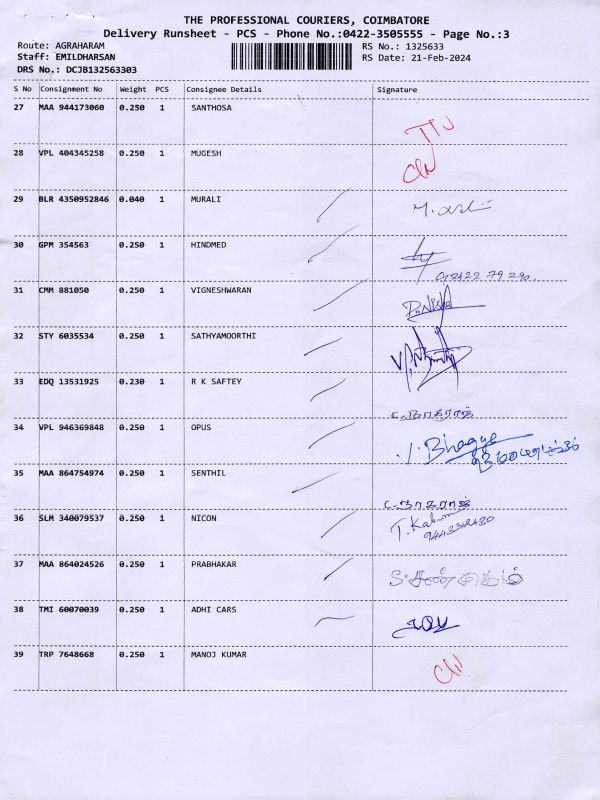 THE PROFESSIONAL COURIERS, COIMBATORE
Delivery Runsheet - PCS - Phone No.:0422-3505555 - Page No.:3
Route: AGRAHARAM RS No.: 1325633
Staff: EMILDHARSAN RS Date: 21-Feb-2024
DRS No.: DCJB132563303
S No Consignment No Weight PCS Consignee Details Signature
27 MAA 944173060 0.250 1 SANTHOSA
28 VPL 404345258 0.250 1 MUGESH
29 BLR 4350952846 0.040 1 MURALI
30 GPM 354563 0.250 1 HINDMED
31 CMM 881050 0.250 1 VIGNESHWARAN
32 STY 6035534 0.250 1 SATHYAMOORTHI
33 EDQ 13531925 0.230 1 R K SAFTEY
34 VPL 946369848 0.250 1 OPUS
35 MAA 864754974 0.250 1 SENTHIL
36 SLM 340079537 0.250 1 NICON
37 MAA 864024526 0.250 1 PRABHAKAR
38 TMI 60070039 0.250 1 ADHI CARS
39 TRP 7648668 0.250 1 MANOJ KUMAR